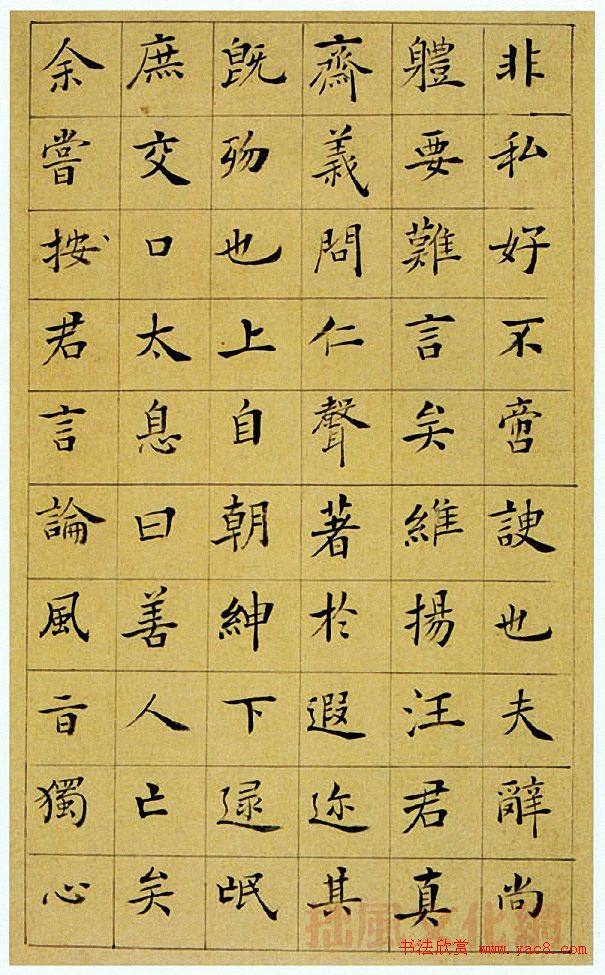 非私好不啻諛也夫辭尚
軆要難言矣維揚汪君真
齋義問仁聲著於遐迩其
既歾也上自朝紳下逮氓
庶交口太息曰善人亡矣
余嘗按君言論風旨獨心
拙風文化網
书法欣赏 www.yac8.com